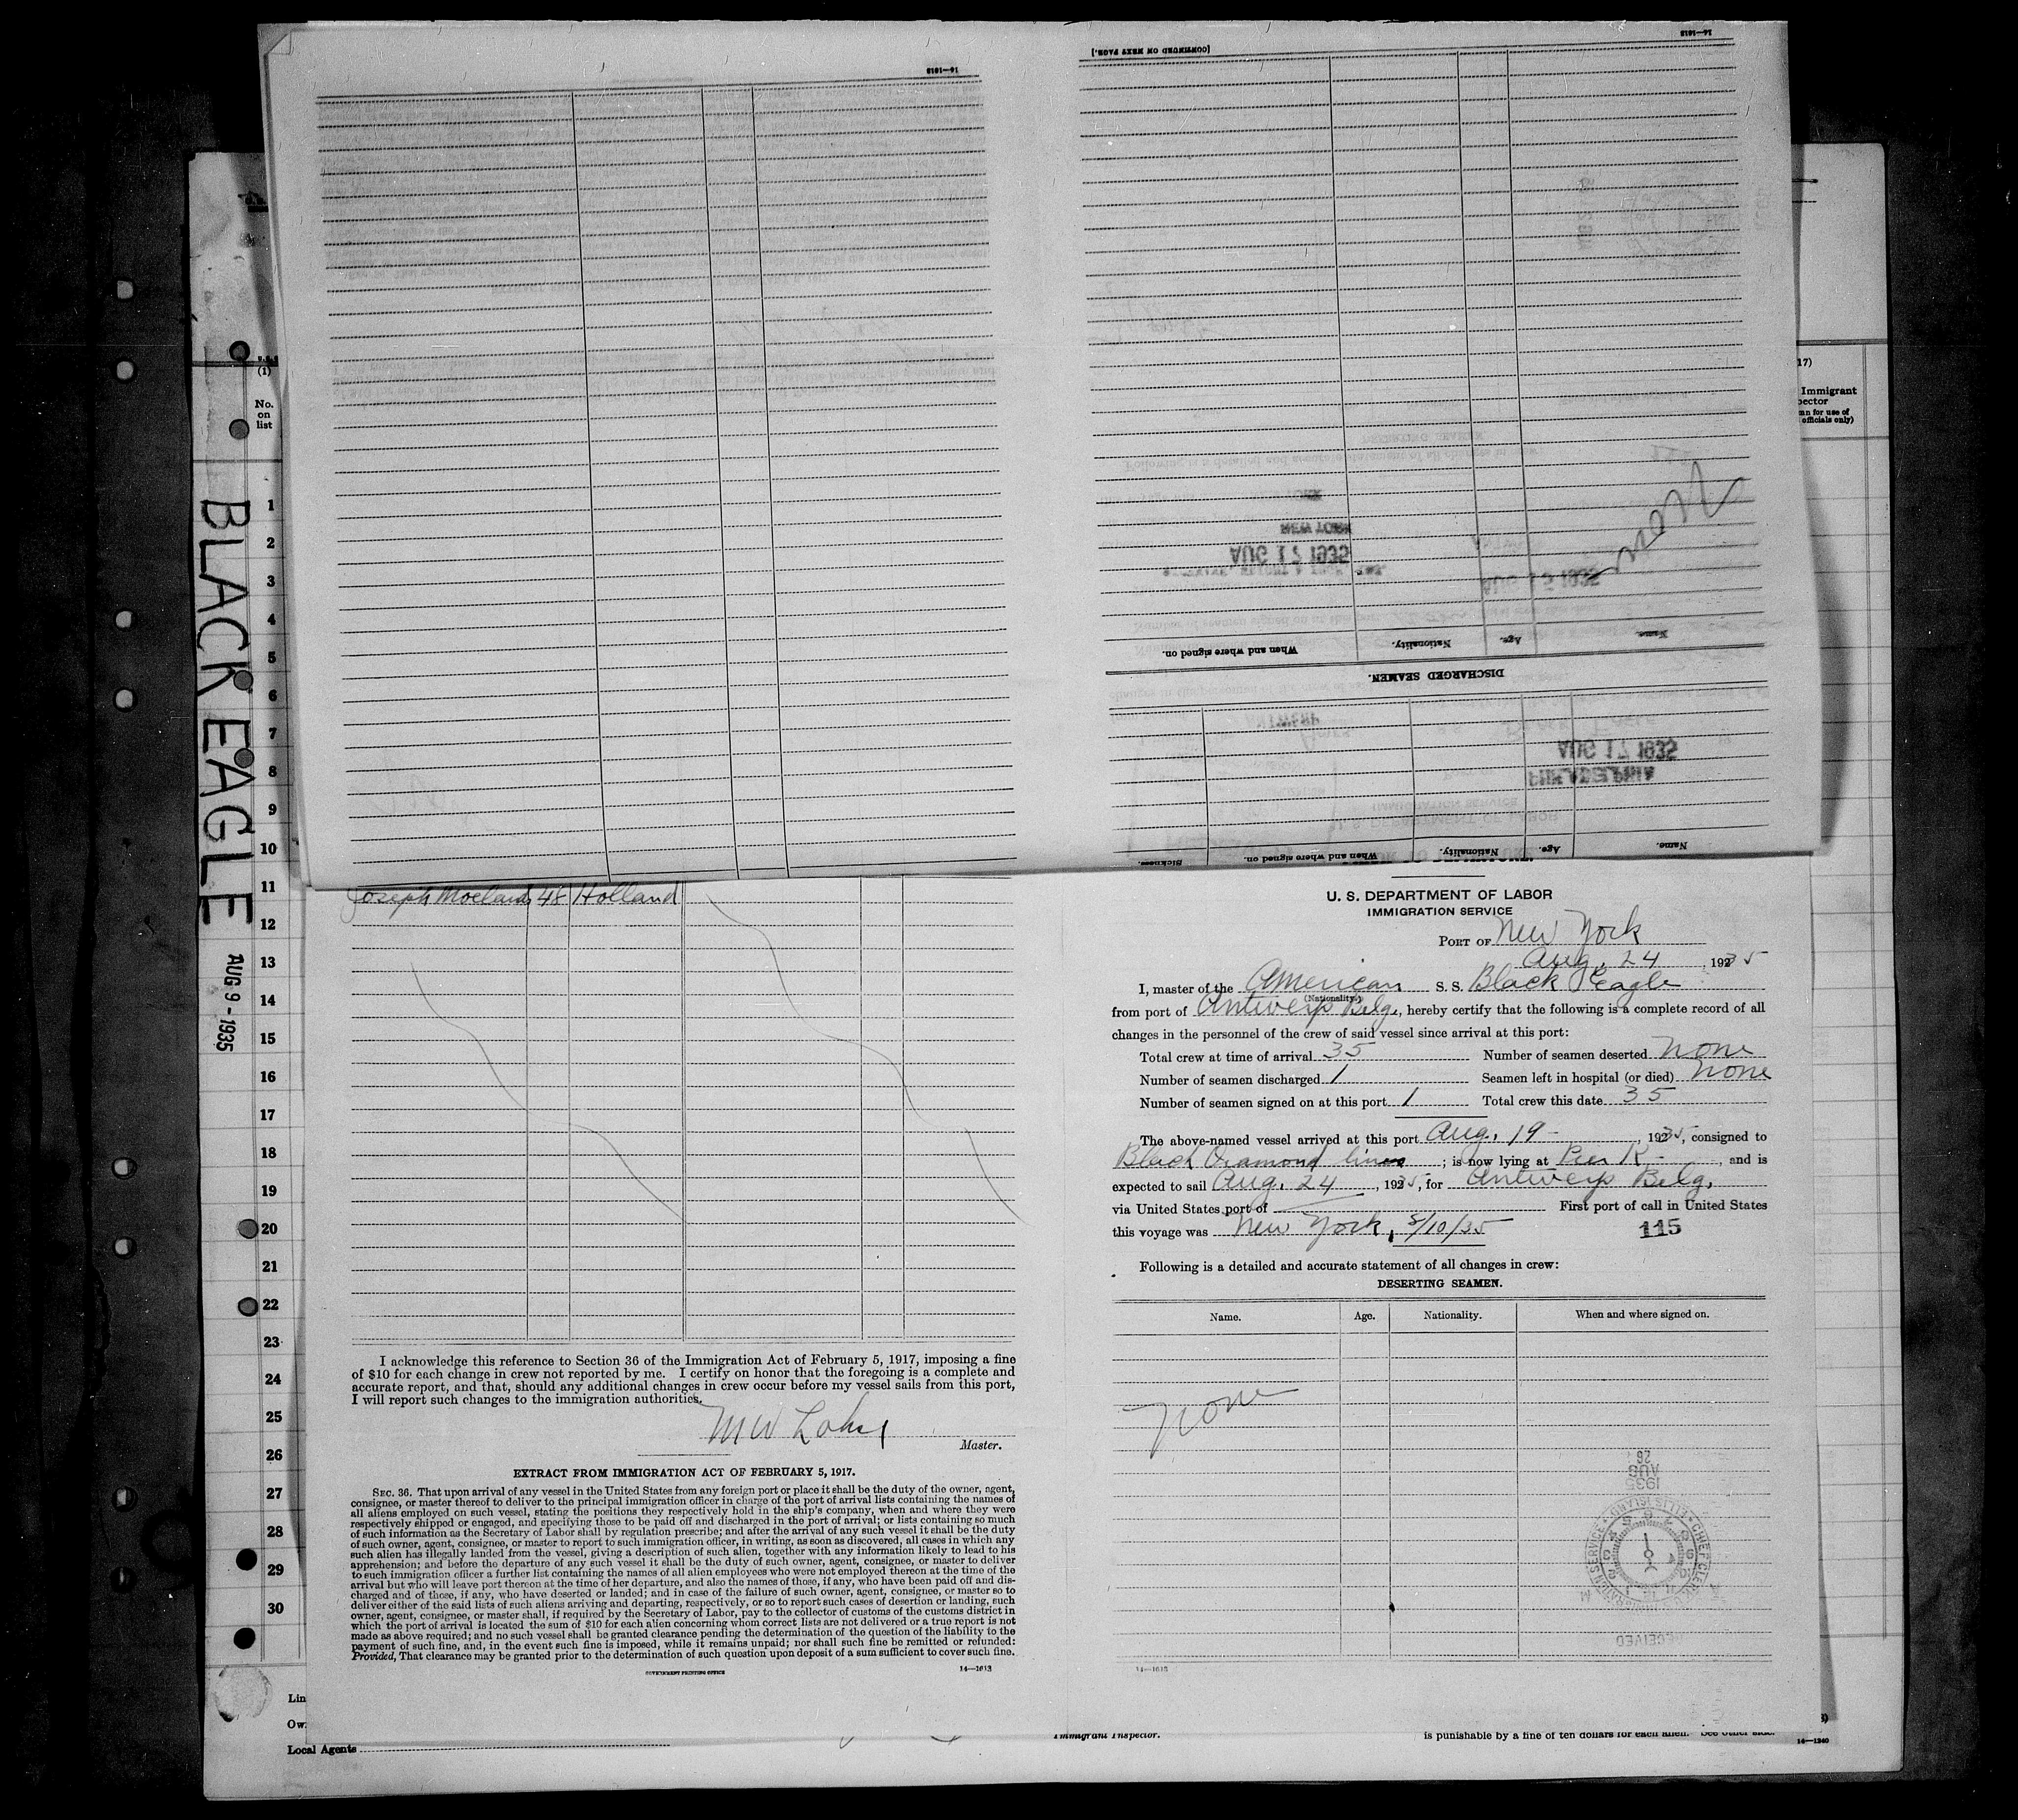 [CONTINUED ON NEXT PAGE.]
14—1613
14—1613
When and where signed on.
Nationality.
Age.
Name.
DISCHARGED SEAMEN.
NEW YORK
AUG 17 1935
AUG 17 1935
PHILADELPHIA
ANTWERP
Sickness.
When and where signed on.
Nationality.
Age.
Name.
None
BLACK EAGLE
AUG 9 - 1935
(1)
No.
on
list
1
2
3
4
5
6
7
8
9
10
11
12
13
14
15
16
17
18
19
20
21
22
23
24
25
26
27
28
29
30
17)
Immigrant
officials only)
Joseph 48 Holland
I acknowledge this reference to Section 36 of the Immigration Act of February 5, 1917, imposing a fine
of $10 for each change in crew not reported by me. I certify on honor that the foregoing is a complete and
accurate report, and that, should any additional changes in crew occur before my vessel sails from this port,
I will report such changes to the immigration authorities.
Master.
EXTRACT FROM IMMIGRATION ACT OF FEBRUARY 5, 1917.
SEC. 36. That upon arrival of any vessel in the United States from any foreign port or place it shall be the duty of the owner, agent,
consignee, or master thereof to deliver to the principal immigration officer in charge of the port of arrival lists containing the names of
all aliens employed on such vessel, stating the positions they respectively hold in the ship's company, when and where they were
respectively shipped or engaged, and specifying those to be paid off and discharged in the port of arrival; or lists containing so much
of such information as the Secretary of Labor shall by regulation prescribe; and after the arrival of any such vessel it shall be the duty
of such owner, agent, consignee, or master to report to such immigration officer, in writing, as soon as discovered, all cases in which any
such alien has illegally landed from the vessel, giving a description of such alien, together with any information likely to lead to his
apprehension; and before the departure of any such vessel it shall be the duty of such owner, agent, consignee, or master to deliver
to such immigration officer a further list containing the names of all alien employees who were not employed thereon at the time of the
arrival but who will leave port thereon at the time of her departure, and also the names of those, if any, who have been paid off and dis-
charged and of those, if any, who have deserted or landed; and in case of the failure of such owner, agent, consignee, or master so to
deliver either of the said lists of such aliens arriving and departing, respectively, or so to report such cases of desertion or landing, such
owner, agent, consignee, or master shall, if required by the Secretary of Labor, pay to the collector of customs of the customs district in
which the port of arrival is located the sum of $10 for each alien concerning whom correct lists are not delivered or a true report is not
made as above required; and no such vessel shall be granted clearance pending the determination of the question of the liability to the
payment of such fine, and, in the event such fine is imposed, while it remains unpaid; nor shall such fine be remitted or refunded:
Provided, That clearance may be granted prior to the determination of such question upon deposit of a sum sufficient to cover such fine.
GOVERNMENT PRINTING OFFICE 14—1613
U. S. DEPARTMENT OF LABOR
IMMIGRATION SERVICE
PORT OF New York
Aug. 24, 1935
I, master of the American S. S. Black Eagle
(Nationality.)
from port of Antwerp Belg., hereby certify that the following is a complete record of all
changes in the personnel of the crew of said vessel since arrival at this port:
Total crew at time of arrival 35 Number of seamen deserted none
Number of seamen discharged 1 Seamen left in hospital (or died) none
Number of seamen signed on at this port 1 Total crew this date 35
The above-named vessel arrived at this port Aug. 19 -, 1935, consigned to
Black Diamond lines; is now lying at Pier K -, and is
expected to sail Aug. 24, 1935, for Antwerp Belg.
via United States port of First port of call in United States
this voyage was New York, 8/10/35
115
Following is a detailed and accurate statement of all changes in crew:
DESERTING SEAMEN.
Name. Age. Nationality. When and where signed on.
none
26
AUG
1935
IMMIGRATION SERVICE • ELLIS ISLAND • CHIEF CLERK
RECEIVED
14—1613
Lin
Ow
Local Agents
Immigrant Inspector.
is punishable by a fine of ten dollars for each alien. See other side.
14—1240